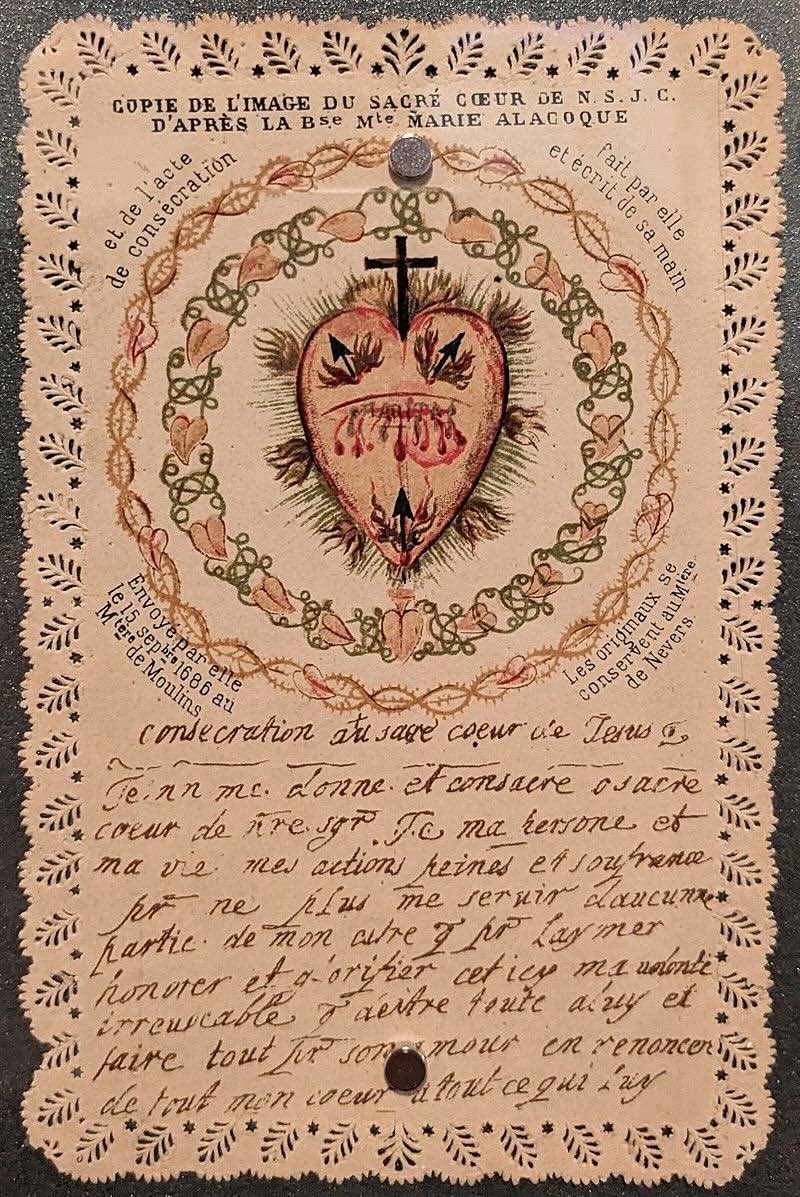 COPIE DE L'IMAGE DU SACRÉ CŒUR DE N. S. J. C.
D'APRÈS LA Bse Mte MARIE ALACOQUE
et de l'acte
de consécration
fait par elle
et écrit de sa main
Envoyé par elle
le 15 sepbre 1686 au
Mtère de Moulins
Les originaux se
conservent au Mtère
de Nevers
consecration au sacre coeur de Jesus
Je nn me donne et consacre o sacre
coeur de nre sgr Jc ma persone et
ma vie mes actions peines et soufrance
pr ne plus me servir daucunne
partie de mon estre q pr laymer
honorer et glorifier cet icy ma volonté
irreuocable q destre toute a luy et
faire tout pr son amour en renoncen
de tout mon coeur a tout ce qui luy